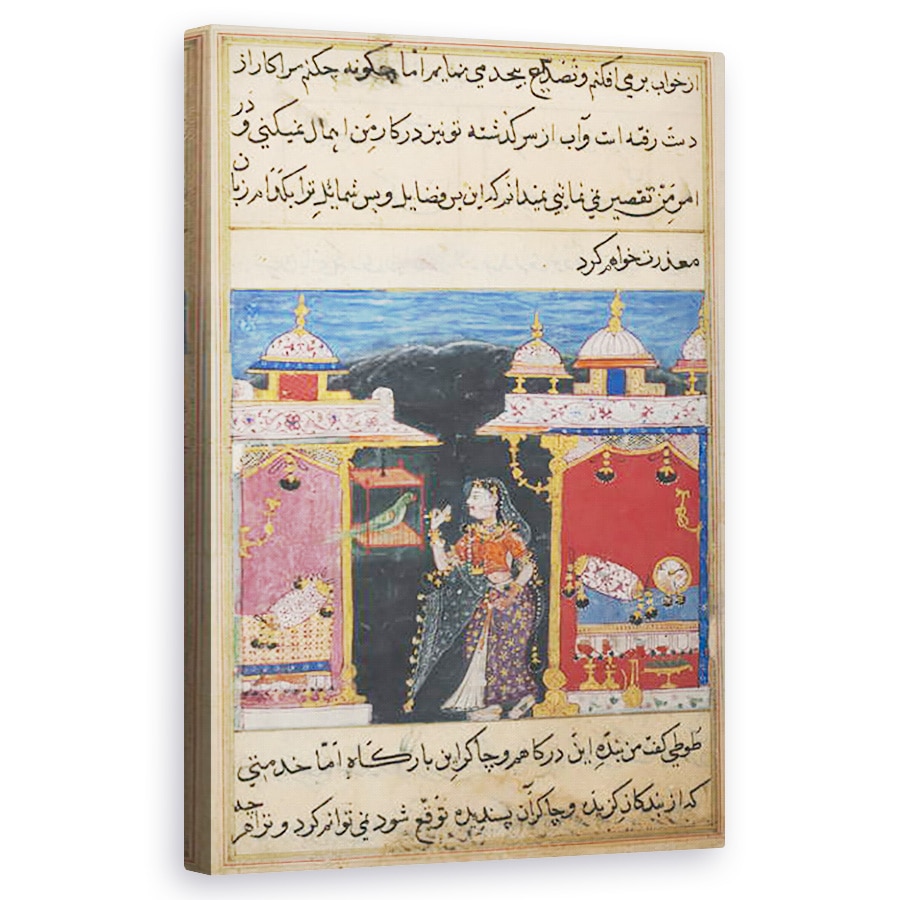 از خواب برمی افکنم و تصدیع بیحد می نمایم اما چگونه چکنم سر کار از
دست رفته است و آب از سر گذشته تو نیز در کار من اهمال نمیکنی و در
امر من تقصیر نمی نمائی نمیدانم که این بس فضایل و بس شمایل ترا بکدام زبان
معذرت خواهم کرد
طوطی گفت من بنده این درگاهم و چاکر این بارگاه اما خدمتی
که از بندگان گزیده و چاکران پسندیده توقع شود نمی توانم کرد و ترا هر چه